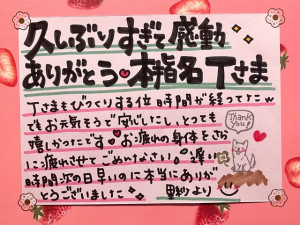 久しぶりすぎて感動
ありがとう 本指名 Tさま
Tさまもびっくりする位時間が経ってたw
でもお元気そうで安心したし、とっても
嬉しかったです お疲れの身体をさら
に疲れさせてごめんなさい。遅い
時間、次の日早いのに本当にありが
とうございました
里紗より
Thank You!